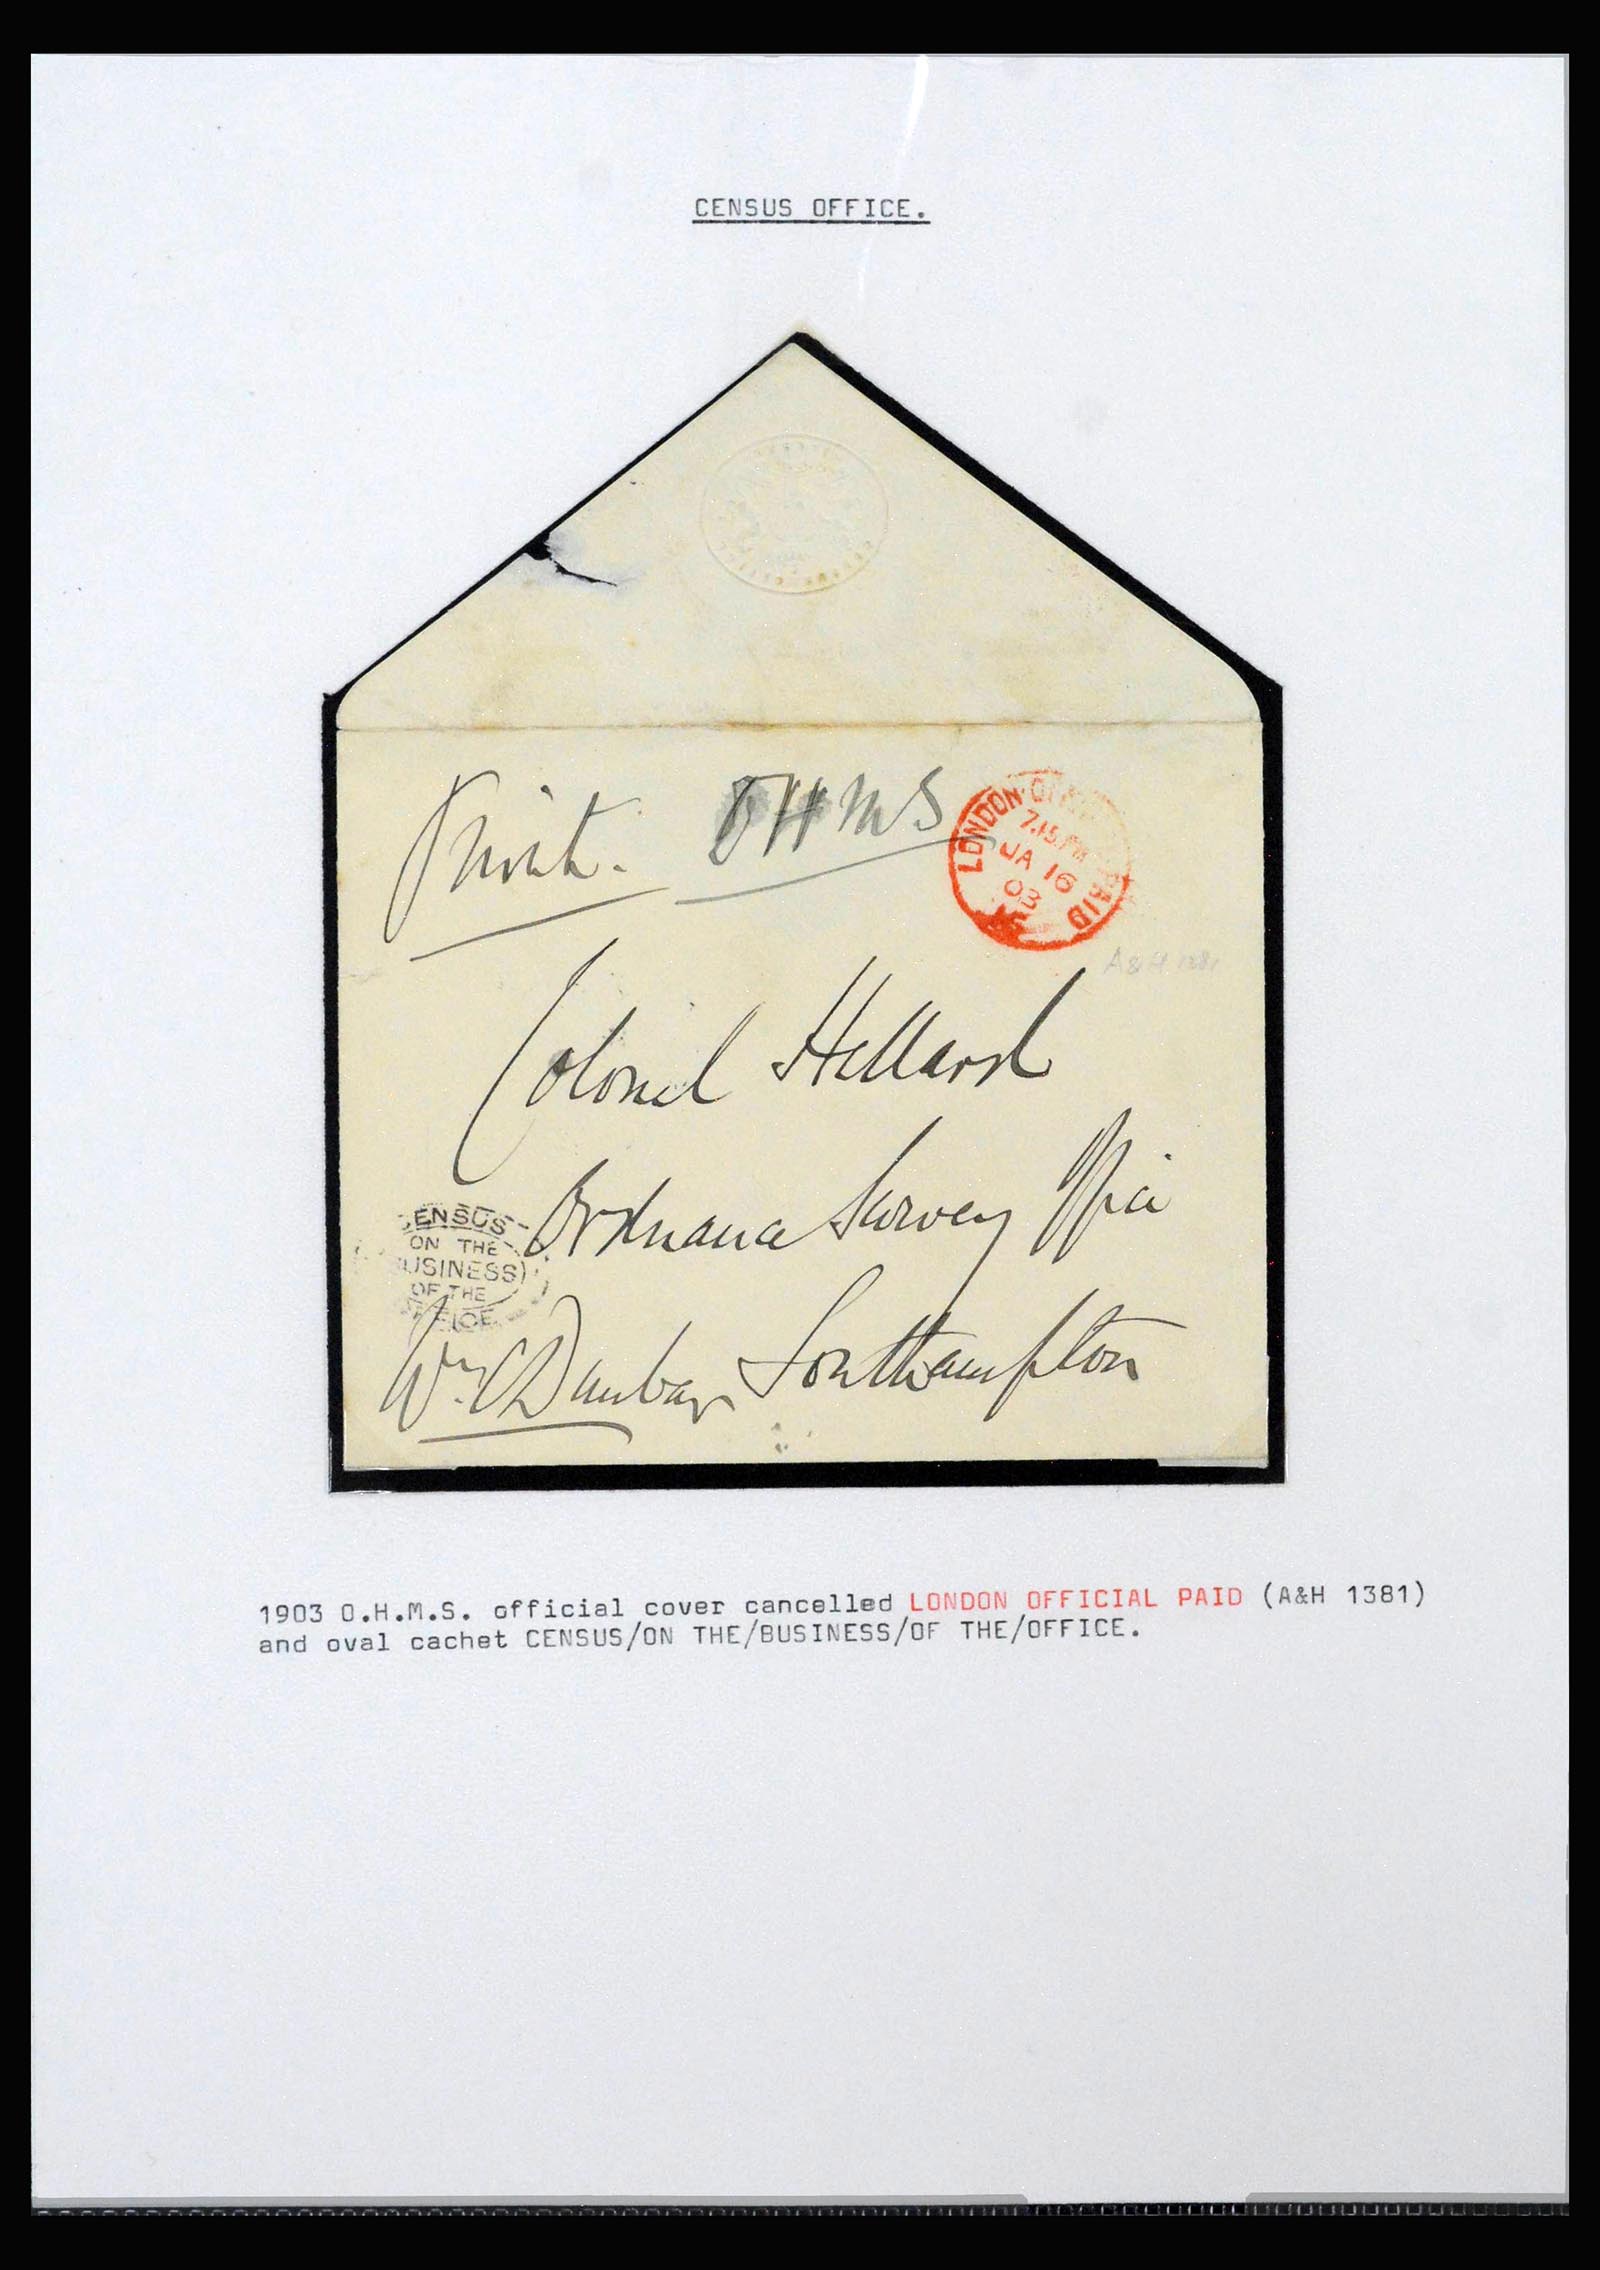 CENSUS OFFICE.
Private. OHMS
LONDON OFFICIAL PAID
7.15 PM
JA 16
03
A&H 1381
Colonel Hellard
Ordnance Survey Office
Southampton
CENSUS
ON THE
BUSINESS)
OF THE
OFFICE
Wm C Dunbar
1903 O.H.M.S. official cover cancelled LONDON OFFICIAL PAID (A&H 1381)
and oval cachet CENSUS/ON THE/BUSINESS/OF THE/OFFICE.